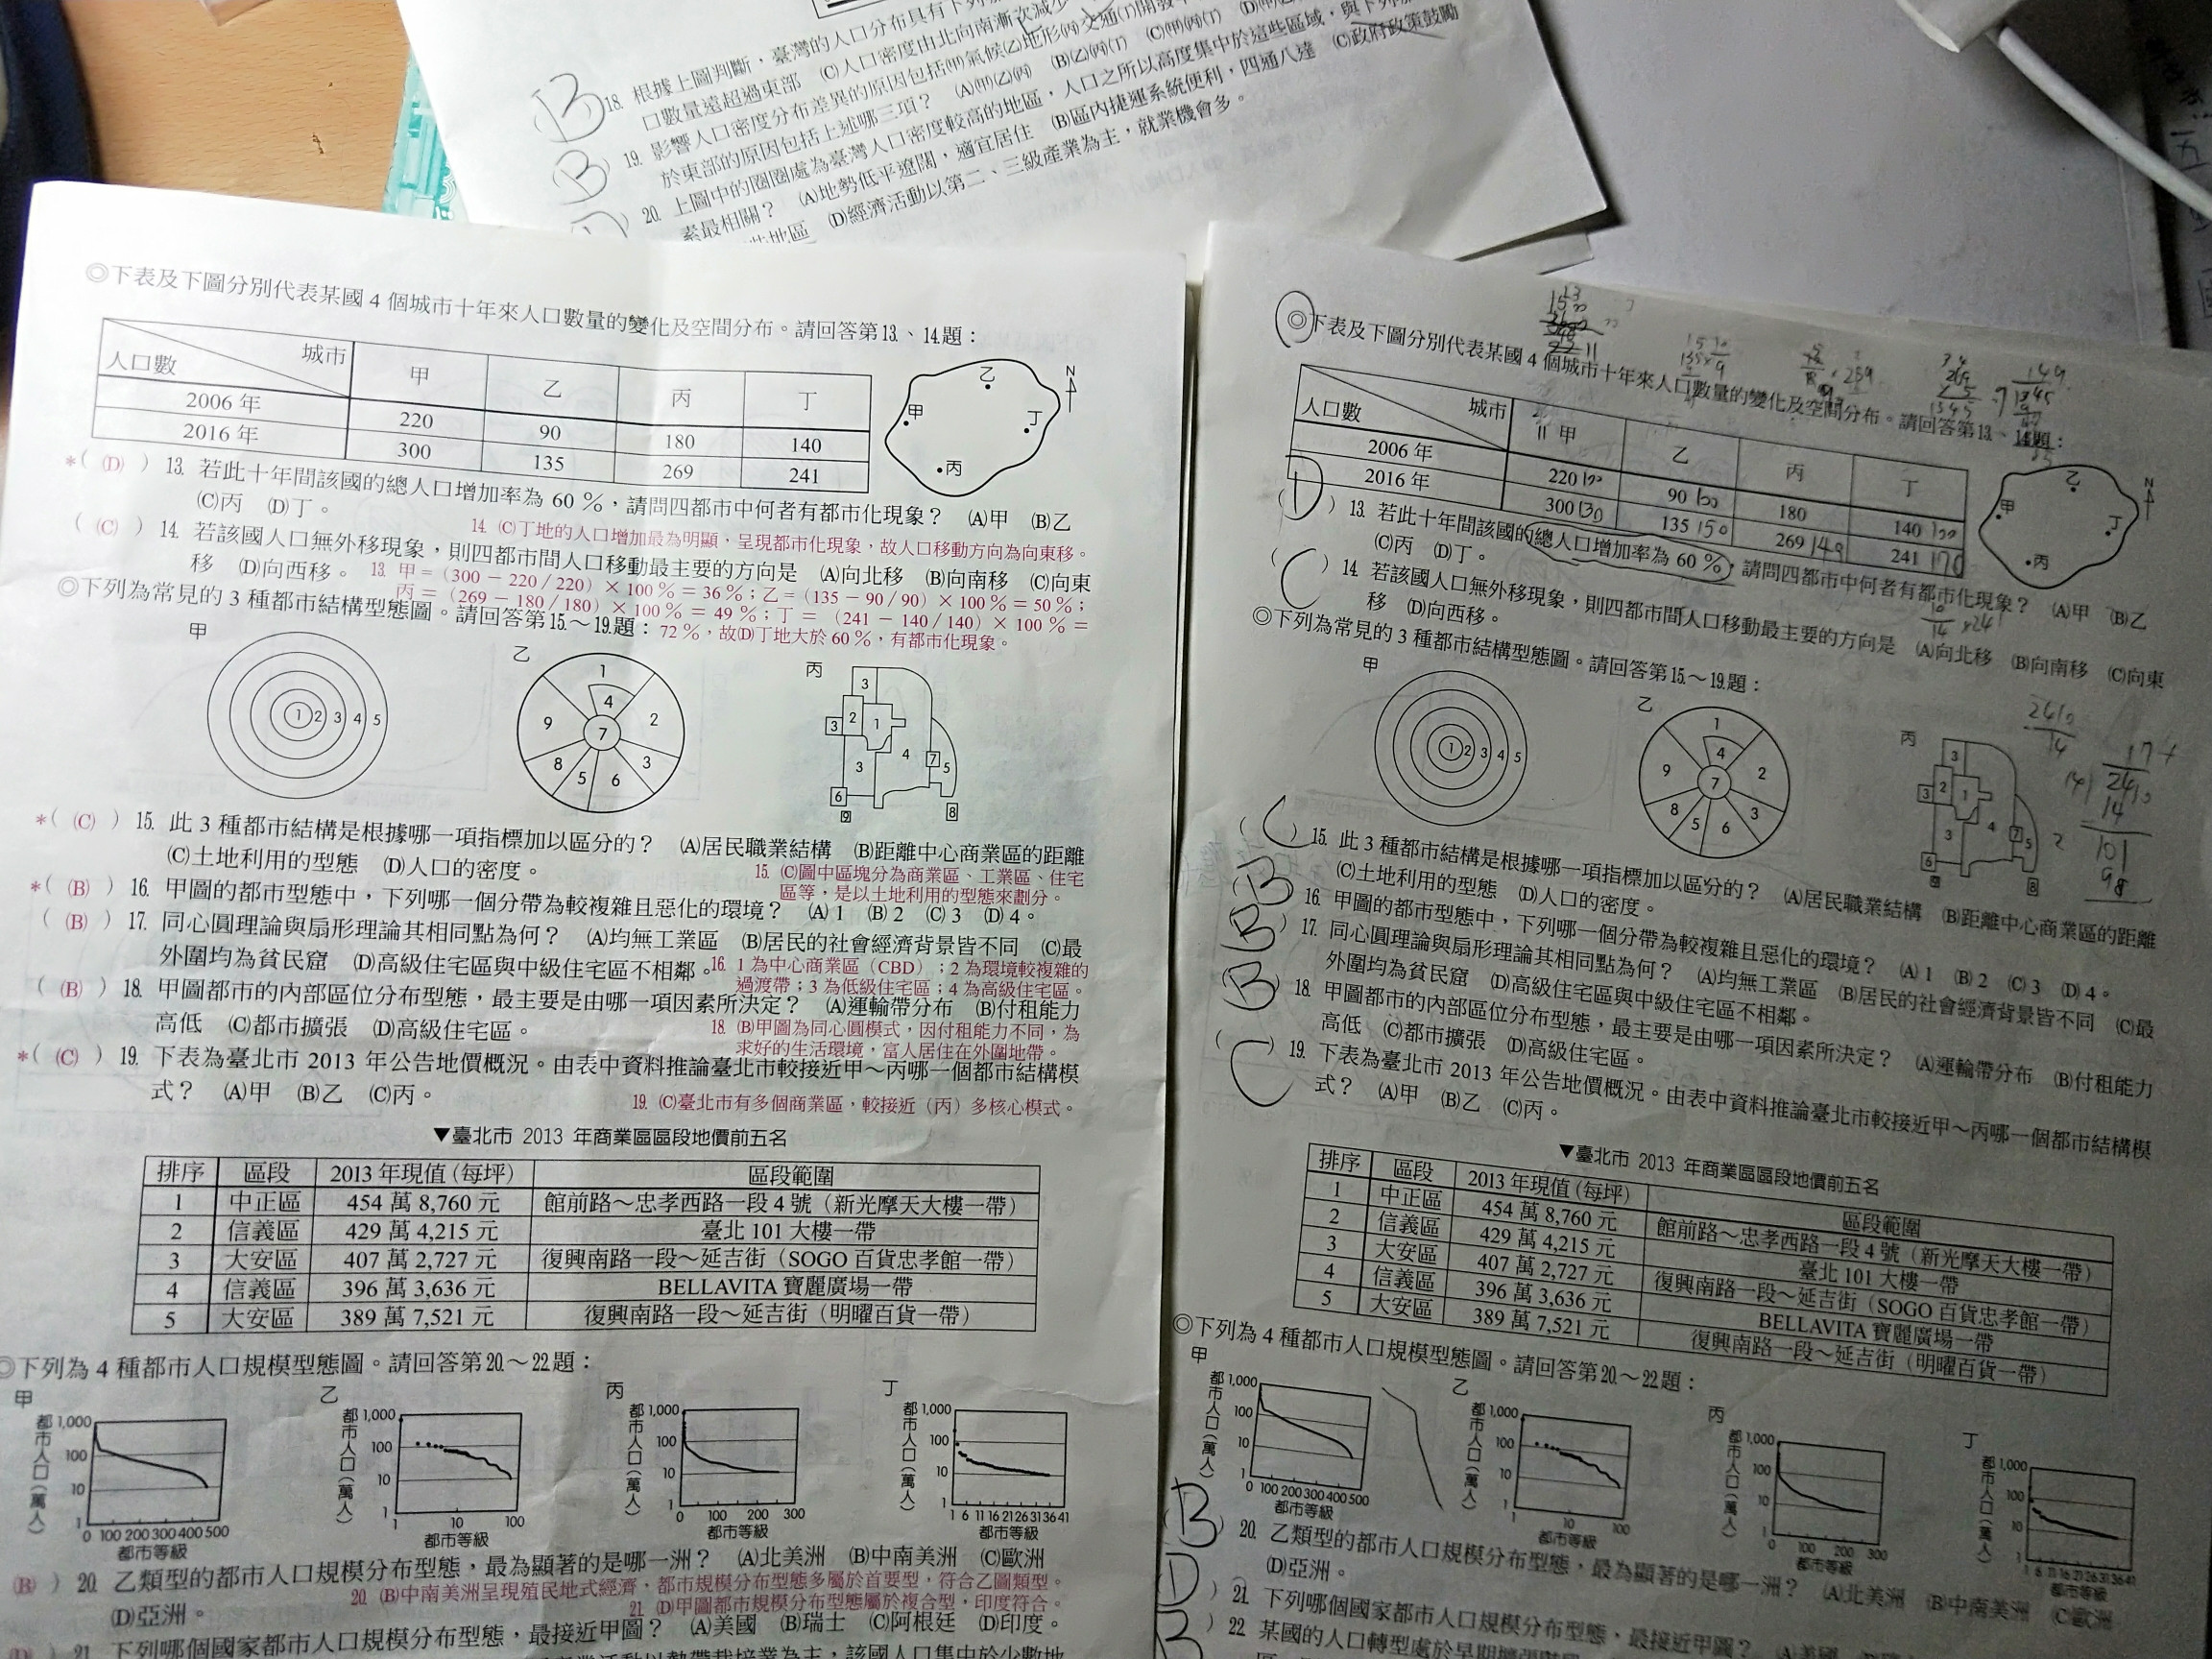 18. 根據上圖判斷，臺灣的人口分布具有下列
口數量遠超過東部 (C)人口密度由北向南漸次減少
19. 影響人口密度分布差異的原因包括(甲)氣候(乙)地形(丙)交通(丁)開發
於東部的原因包括上述哪三項？ (A)(甲)(乙)(丙) (B)(乙)(丙)(丁) (C)(甲)(丙)(丁)
20. 上圖中的圈圈處為臺灣人口密度較高的地區，人口之所以高度集中於這些區域，與下列
素最相關？ (A)地勢低平遼闊，適宜居住 (B)區內捷運系統便利，四通八達 (C)政府政策鼓勵
些地區 (D)經濟活動以第二、三級產業為主，就業機會多。
B
B
◎下表及下圖分別代表某國 4 個城市十年來人口數量的變化及空間分布。請回答第13.、14.題：
人口數 城市 甲 乙 丙 丁
2006 年 220 90 180 140
2016 年 300 135 269 241
甲 乙 丙 丁 N
*( (D) ) 13. 若此十年間該國的總人口增加率為 60 %，請問四都市中何者有都市化現象？ (A)甲 (B)乙
(C)丙 (D)丁。
14. (C)丁地的人口增加最為明顯，呈現都市化現象，故人口移動方向為向東移。
( (C) ) 14. 若該國人口無外移現象，則四都市間人口移動最主要的方向是 (A)向北移 (B)向南移 (C)向東
移 (D)向西移。
13. 甲＝(300－220/220)×100%＝36%；乙＝(135－90/90)×100%＝50%；
丙＝(269－180/180)×100%＝49%；丁＝(241－140/140)×100%＝
72%，故(D)丁地大於60%，有都市化現象。
◎下列為常見的 3 種都市結構型態圖。請回答第15.～19.題：
甲 1 2 3 4 5
乙 1 2 3 4 5 6 7 8 9
丙 1 2 3 3 3 4 5 6 7 8 9
*( (C) ) 15. 此 3 種都市結構是根據哪一項指標加以區分的？ (A)居民職業結構 (B)距離中心商業區的距離
(C)土地利用的型態 (D)人口的密度。
15. (C)圖中區塊分為商業區、工業區、住宅
區等，是以土地利用的型態來劃分。
*( (B) ) 16. 甲圖的都市型態中，下列哪一個分帶為較複雜且惡化的環境？ (A) 1 (B) 2 (C) 3 (D) 4。
( (B) ) 17. 同心圓理論與扇形理論其相同點為何？ (A)均無工業區 (B)居民的社會經濟背景皆不同 (C)最
外圍均為貧民窟 (D)高級住宅區與中級住宅區不相鄰。
16. 1 為中心商業區（CBD）；2 為環境較複雜的
過渡帶；3 為低級住宅區；4 為高級住宅區。
( (B) ) 18. 甲圖都市的內部區位分布型態，最主要是由哪一項因素所決定？ (A)運輸帶分布 (B)付租能力
高低 (C)都市擴張 (D)高級住宅區。
18. (B)甲圖為同心圓模式，因付租能力不同，為
求好的生活環境，富人居住在外圍地帶。
*( (C) ) 19. 下表為臺北市 2013 年公告地價概況。由表中資料推論臺北市較接近甲～丙哪一個都市結構模
式？ (A)甲 (B)乙 (C)丙。
19. (C)臺北市有多個商業區，較接近（丙）多核心模式。
▼臺北市 2013 年商業區區段地價前五名
排序 區段 2013 年現值 (每坪) 區段範圍
1 中正區 454 萬 8,760 元 館前路～忠孝西路一段 4 號（新光摩天大樓一帶）
2 信義區 429 萬 4,215 元 臺北 101 大樓一帶
3 大安區 407 萬 2,727 元 復興南路一段～延吉街（SOGO 百貨忠孝館一帶）
4 信義區 396 萬 3,636 元 BELLAVITA 寶麗廣場一帶
5 大安區 389 萬 7,521 元 復興南路一段～延吉街（明曜百貨一帶）
◎下列為 4 種都市人口規模型態圖。請回答第20.～22.題：
甲 都市人口（萬人） 1,000 100 10 1 0 100 200 300 400 500 都市等級
乙 都市人口（萬人） 1,000 100 10 1 1 10 100 都市等級
丙 都市人口（萬人） 1,000 100 10 1 0 100 200 300 都市等級
丁 都市人口（萬人） 1,000 100 10 1 1 6 11 16 21 26 31 36 41 都市等級
(B) ) 20. 乙類型的都市人口規模分布型態，最為顯著的是哪一洲？ (A)北美洲 (B)中南美洲 (C)歐洲
(D)亞洲。
20. (B)中南美洲呈現殖民地式經濟，都市規模分布型態多屬於首要型，符合乙圖類型。
21. (D)甲圖都市規模分布型態屬於複合型，印度符合。
(D) ) 21. 下列哪個國家都市人口規模分布型態，最接近甲圖？ (A)美國 (B)瑞士 (C)阿根廷 (D)印度。
業活動以熱帶栽培業為主，該國人口集中於少數地
◎下表及下圖分別代表某國 4 個城市十年來人口數量的變化及空間分布。請回答第13.、14.題：
人口數 城市 甲 乙 丙 丁
2006 年 220 100 90 100 180 140 100
2016 年 300 130 135 150 269 149 241 170
甲 乙 丙 丁 N
( D ) 13. 若此十年間該國的總人口增加率為 60 %，請問四都市中何者有都市化現象？ (A)甲 (B)乙
(C)丙 (D)丁。
( C ) 14. 若該國人口無外移現象，則四都市間人口移動最主要的方向是 (A)向北移 (B)向南移 (C)向東
移 (D)向西移。
◎下列為常見的 3 種都市結構型態圖。請回答第15.～19.題：
甲 1 2 3 4 5
乙 1 2 3 4 5 6 7 8 9
丙 1 2 3 3 3 4 5 6 7 8 9
( C ) 15. 此 3 種都市結構是根據哪一項指標加以區分的？ (A)居民職業結構 (B)距離中心商業區的距離
(C)土地利用的型態 (D)人口的密度。
B 16. 甲圖的都市型態中，下列哪一個分帶為較複雜且惡化的環境？ (A) 1 (B) 2 (C) 3 (D) 4。
B 17. 同心圓理論與扇形理論其相同點為何？ (A)均無工業區 (B)居民的社會經濟背景皆不同 (C)最
外圍均為貧民窟 (D)高級住宅區與中級住宅區不相鄰。
B 18. 甲圖都市的內部區位分布型態，最主要是由哪一項因素所決定？ (A)運輸帶分布 (B)付租能力
高低 (C)都市擴張 (D)高級住宅區。
( C ) 19. 下表為臺北市 2013 年公告地價概況。由表中資料推論臺北市較接近甲～丙哪一個都市結構模
式？ (A)甲 (B)乙 (C)丙。
▼臺北市 2013 年商業區區段地價前五名
排序 區段 2013 年現值 (每坪) 區段範圍
1 中正區 454 萬 8,760 元 館前路～忠孝西路一段 4 號（新光摩天大樓一帶）
2 信義區 429 萬 4,215 元 臺北 101 大樓一帶
3 大安區 407 萬 2,727 元 復興南路一段～延吉街（SOGO 百貨忠孝館一帶）
4 信義區 396 萬 3,636 元 BELLAVITA 寶麗廣場一帶
5 大安區 389 萬 7,521 元 復興南路一段～延吉街（明曜百貨一帶）
◎下列為 4 種都市人口規模型態圖。請回答第20.～22.題：
甲 都市人口（萬人） 1,000 100 10 1 0 100 200 300 400 500 都市等級
乙 都市人口（萬人） 1,000 100 10 1 1 10 100 都市等級
丙 都市人口（萬人） 1,000 100 10 1 0 100 200 300 都市等級
丁 都市人口（萬人） 1,000 100 10 1 1 6 11 16 21 26 31 36 41 都市等級
B 20. 乙類型的都市人口規模分布型態，最為顯著的是哪一洲？ (A)北美洲 (B)中南美洲 (C)歐洲
(D)亞洲。
D ) 21. 下列哪個國家都市人口規模分布型態，最接近甲圖？ (A)美國
B ) 22. 某國的人口轉型處於早期擴張